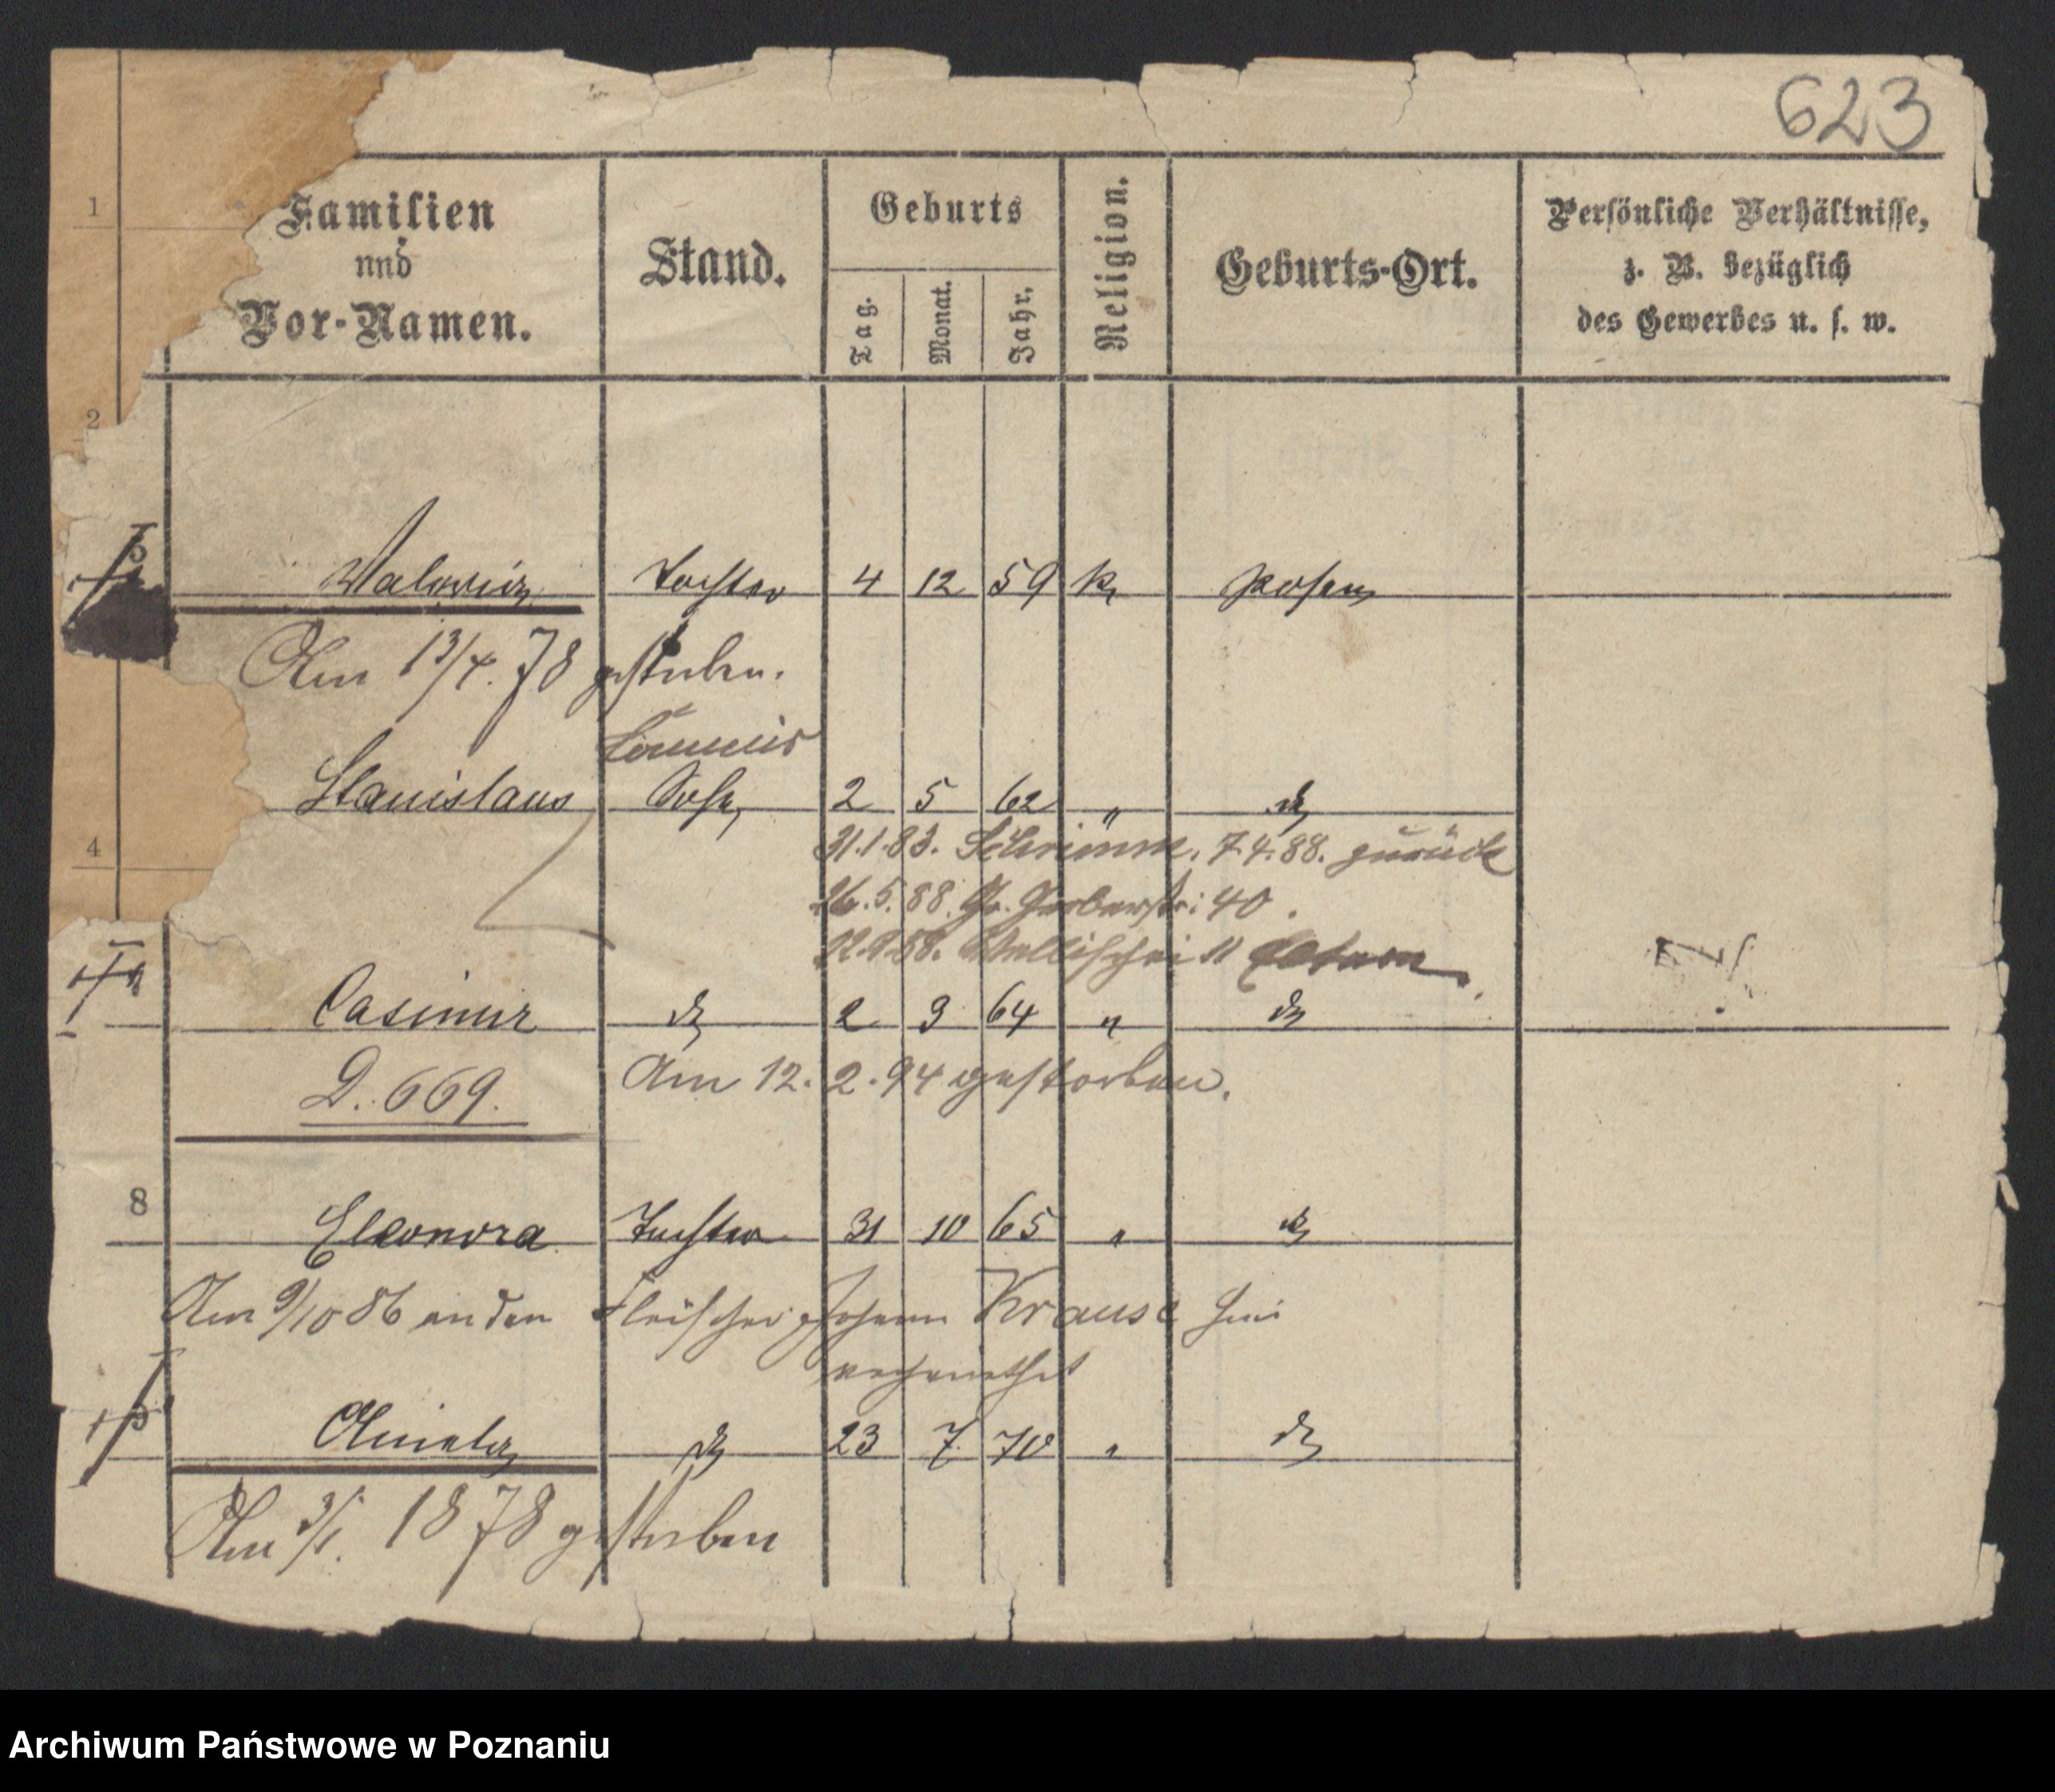 623
1
Familien
und
Vor-Namen.
Stand.
Geburts
Tag.
Monat.
Jahr.
Religion.
Geburts-Ort.
Persönliche Verhältnisse,
z. B. bezüglich
des Gewerbes u. s. w.
2
Tochter 4 12 59 k Posen
Am 13/4. 78 gestorben.
Commis
4
Stanislaus Sohn 2 5 62 " do
31.1.83. Schrimm. 7.4.88. zurück
26.5.88. Gr. Gerberstr: 40.
12.9.88. Wallischei 11
Casimir do 2 3 64 " do
D. 669. Am 12. 2. 94 gestorben.
8 Eleonora Tochter 31 10 65 " do
Am 9/10 86 an den Fleischer Johann Krause hier
verheirathet
do 23 7 70 " do
Am 3/1. 1878 gestorben
Archiwum Państwowe w Poznaniu